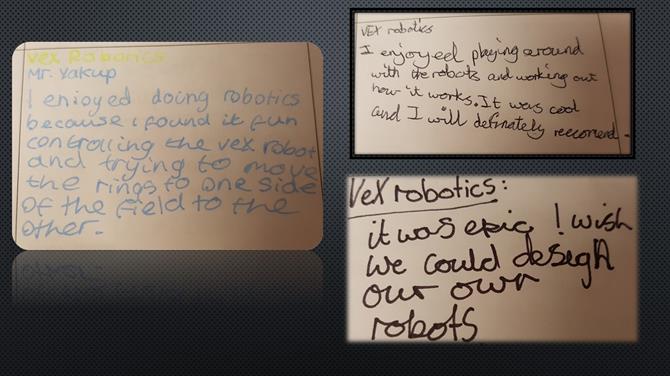 Vex Robotics
Mr. Yakup
I enjoyed doing robotics
because i found it fun
controlling the vex robot
and trying to move
the rings to one side
of the field to the
other.
VEX robotics
I enjoyed playing around
with the robots and working out
how it works. It was cool
and I will definately reccomend.
VeX robotics:
it was epic I wish
we could design
our own
robots